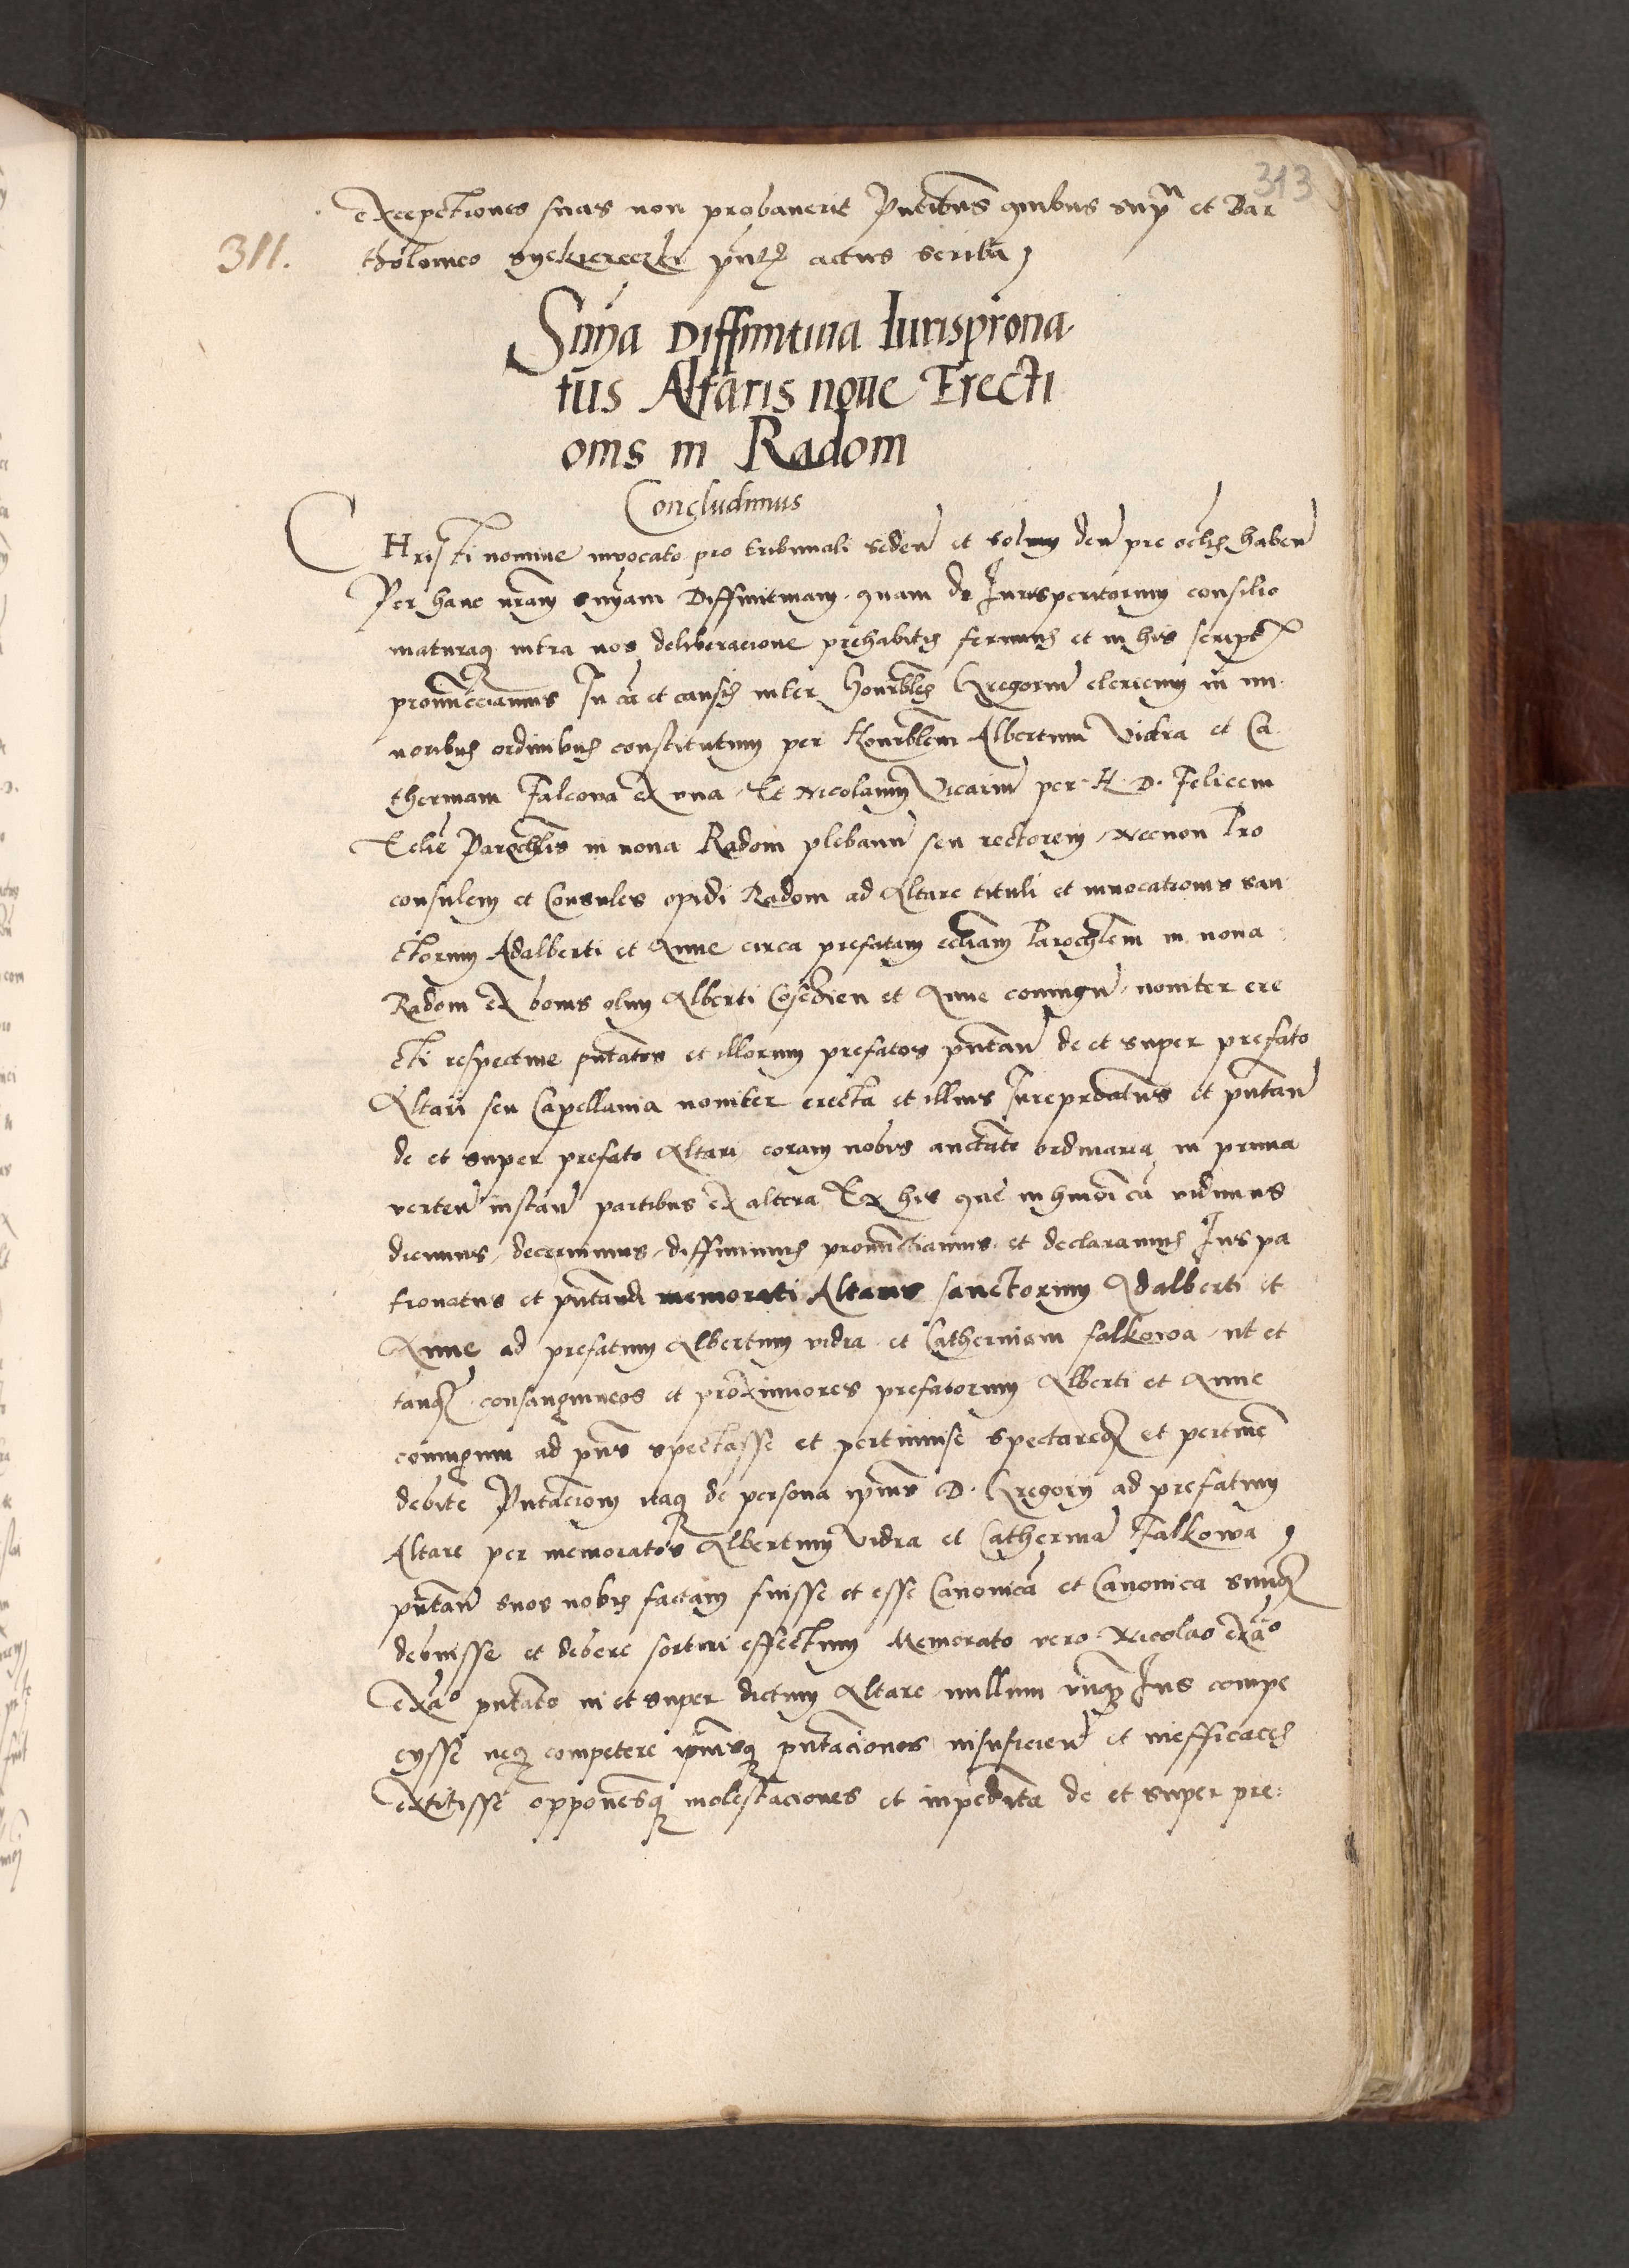 313
exceptiones suas non probaverit Pntibus quibus supra et Bar
311.
tholomeo syekiereczki pntz actus scriba
Snia Diffinitiva Iurisprona
tus Altaris nove Erecti
onis in Radom
Concludimus
CHristi nomine invocato pro tribunali seden et solum deu pre oclis haben
Per hanc nram sniam Diffinitivam quam de Iurisperitorum consilio
maturaq intra nos deliberacione prehabitis ferimus et in his script
pronuncciamus In ca et causis inter Honrbles Gregoriu clericum in mi
noribus ordinibus constitutum per Honrblem Albertum Vidra et Ca
therinam Falcova ex una Et Nicolaum Vicariu per H. D. Felicem
Eclie Parochlis in nova Radom plebanu seu rectorem Necnon Pro
consulem et Consules opidi Radom ad Altare tituli et invocationis san
ctorum Adalberti et Anne circa prefatam ecliam Parochlem in nova
Radom ex bonis olim Alberti Cosdzien et Anne coniugu noviter ere
cti respective pntatos et illorum prefatos pntan de et super prefato
Altari seu Capellania noviter erecta et illius Iureprdatus et pntan
de et super prefato Altari coram nobis auctate ordinaria in prima
verten instan partibus ex altera Ex his que in hmoi ca vidimus
dicimus decernimus diffinimus pronunctiamus et declaramus Ius pa
tronatus et pntandi memorati Altaris sanctorum Adalberti et
Anne ad prefatum Albertum vidra et Catherinam falkowa ut et
tanq consanguineos et proximiores prefatorum Alberti et Anne
coniugum ad pns spectasse et pertinuise spectareq et pertine
debite Pntacionem itaq de persona ipsius D. Gregorij ad prefatum
Altare per memoratos Albertum Vidra et Catherina Falkowa
pntan suos nobis factam fuisse et esse Canonica et Canonica suumq
debuisse et debere sortiri effectum Memorato vero Nicolao exao
exao pntato in et super dictum Altare nullum unq Ius compe
cysse neq competere ipiusq pntaciones insuficien et inefficaces
extitisse opponesq molestaciones et inpedita de et super pre: